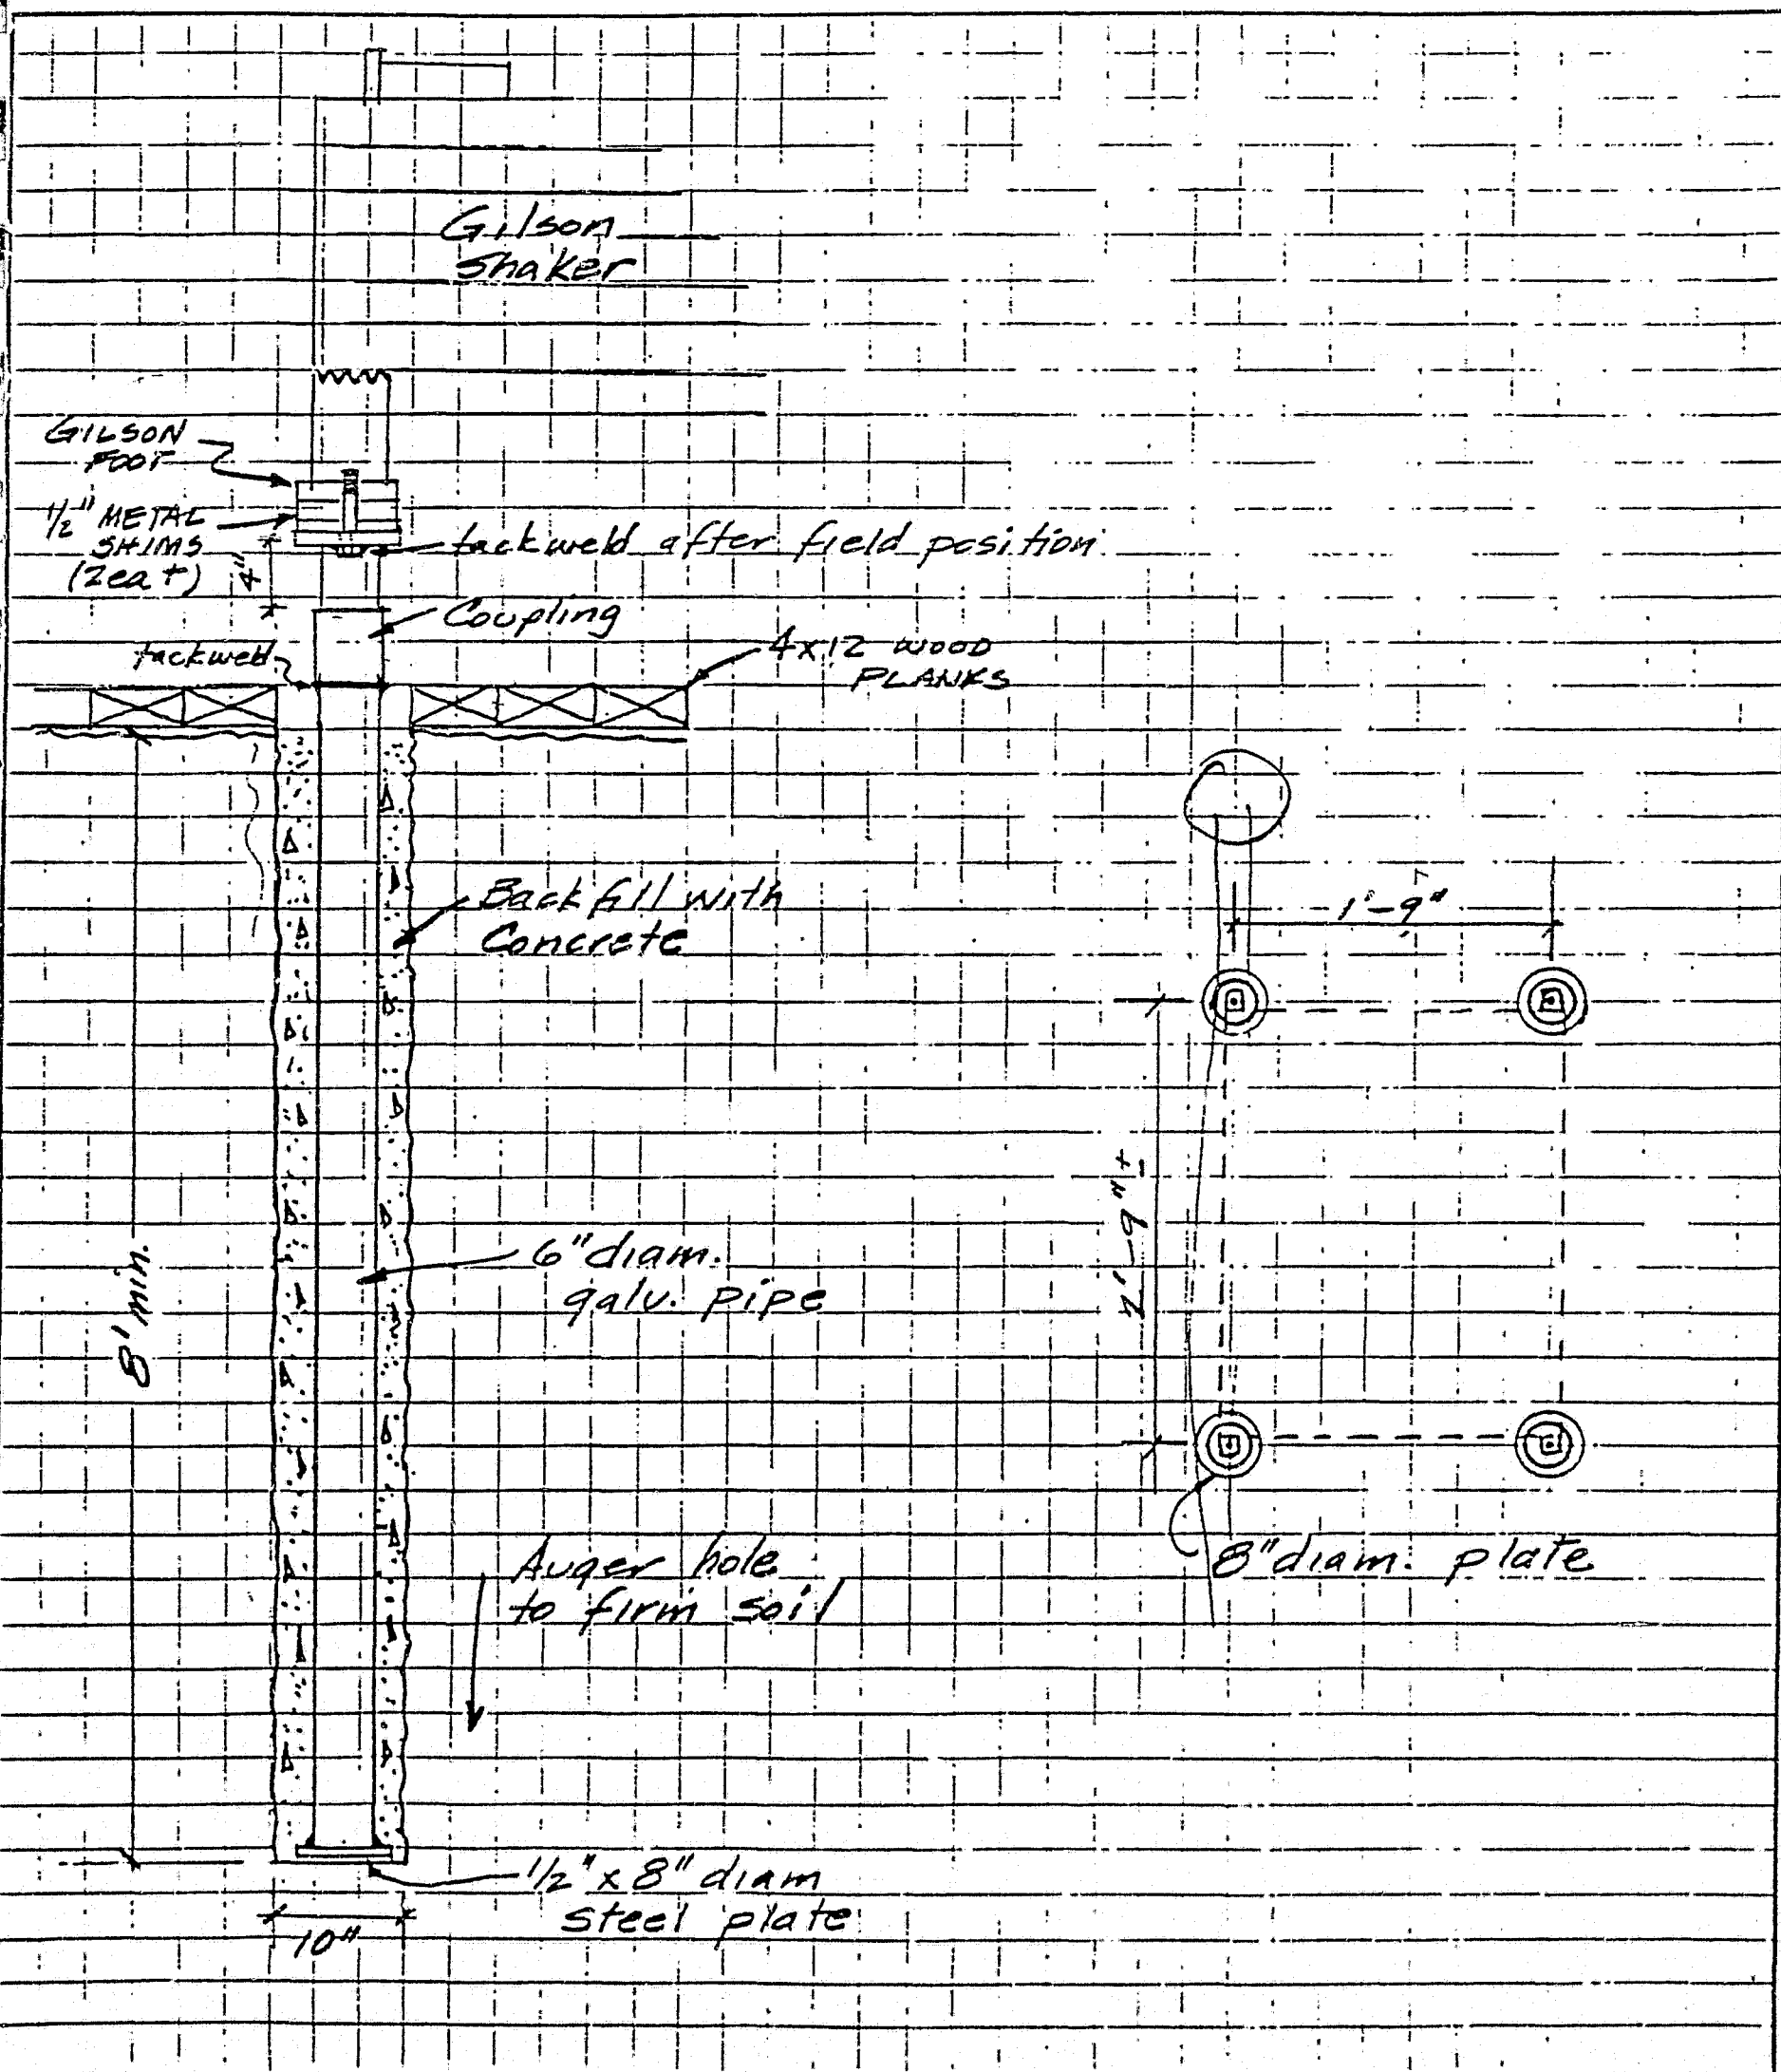 Gilson
Shaker
GILSON
FOOT
1/2" METAL
SHIMS
(2ea +)
4"
tackweld after field position
Coupling
tackweld
4x12 WOOD
PLANKS
Back fill with
Concrete
1'-9"
2'-9"±
8' min.
6" diam.
galv. pipe
Auger hole
to firm soil
8" diam. plate
1/2" x 8" diam
steel plate
10"